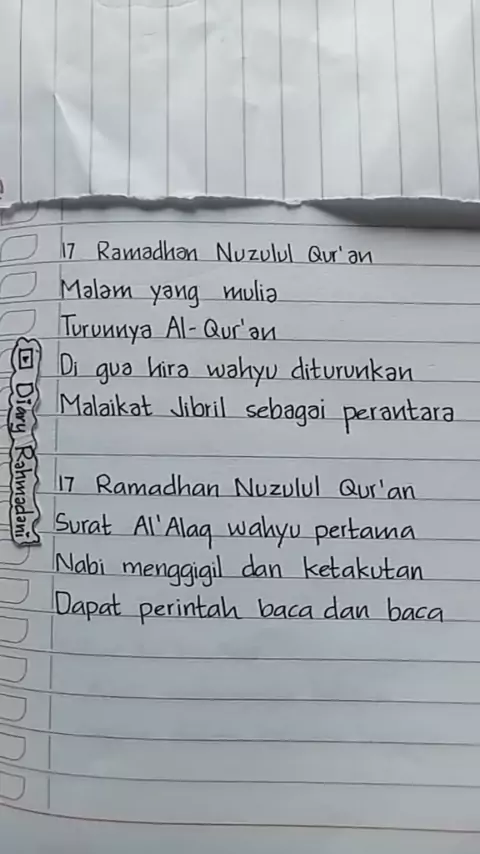 17 Ramadhan Nuzulul Qur'an
Malam yang mulia
Turunnya Al-Qur'an
Di gua hira wahyu diturunkan
Malaikat Jibril sebagai perantara
17 Ramadhan Nuzulul Qur'an
Surat Al'Alaq wahyu pertama
Nabi menggigil dan ketakutan
Dapat perintah baca dan baca
Diary Rahmadani